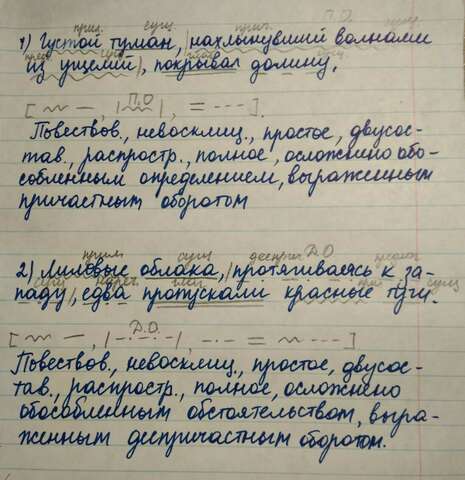 прил. сущ. прич. П.О. сущ.
1) Густой туман, нахлынувший волнами
предл. сущ. глаг. сущ.
из ущелий, покрывал долину.
П.О.
[ — , | |, = --- ].
Повествов., невосклиц., простое, двусос-
тав., распростр., полное, осложнено обо-
собленным определением, выраженным
причастным оборотом
прил. сущ. дееприч. Д.О. предлог
2) Лиловые облака, протягиваясь к за-
сущ. нареч. глаг. прил. сущ.
паду, едва пропускали красные лучи.
Д.О.
[ — , | -.-.- |, -.- = ---- ]
Повествов., невосклиц., простое, двусос-
тав., распростр., полное, осложнено
обособленным обстоятельством, выра-
женным деепричастным оборотом.